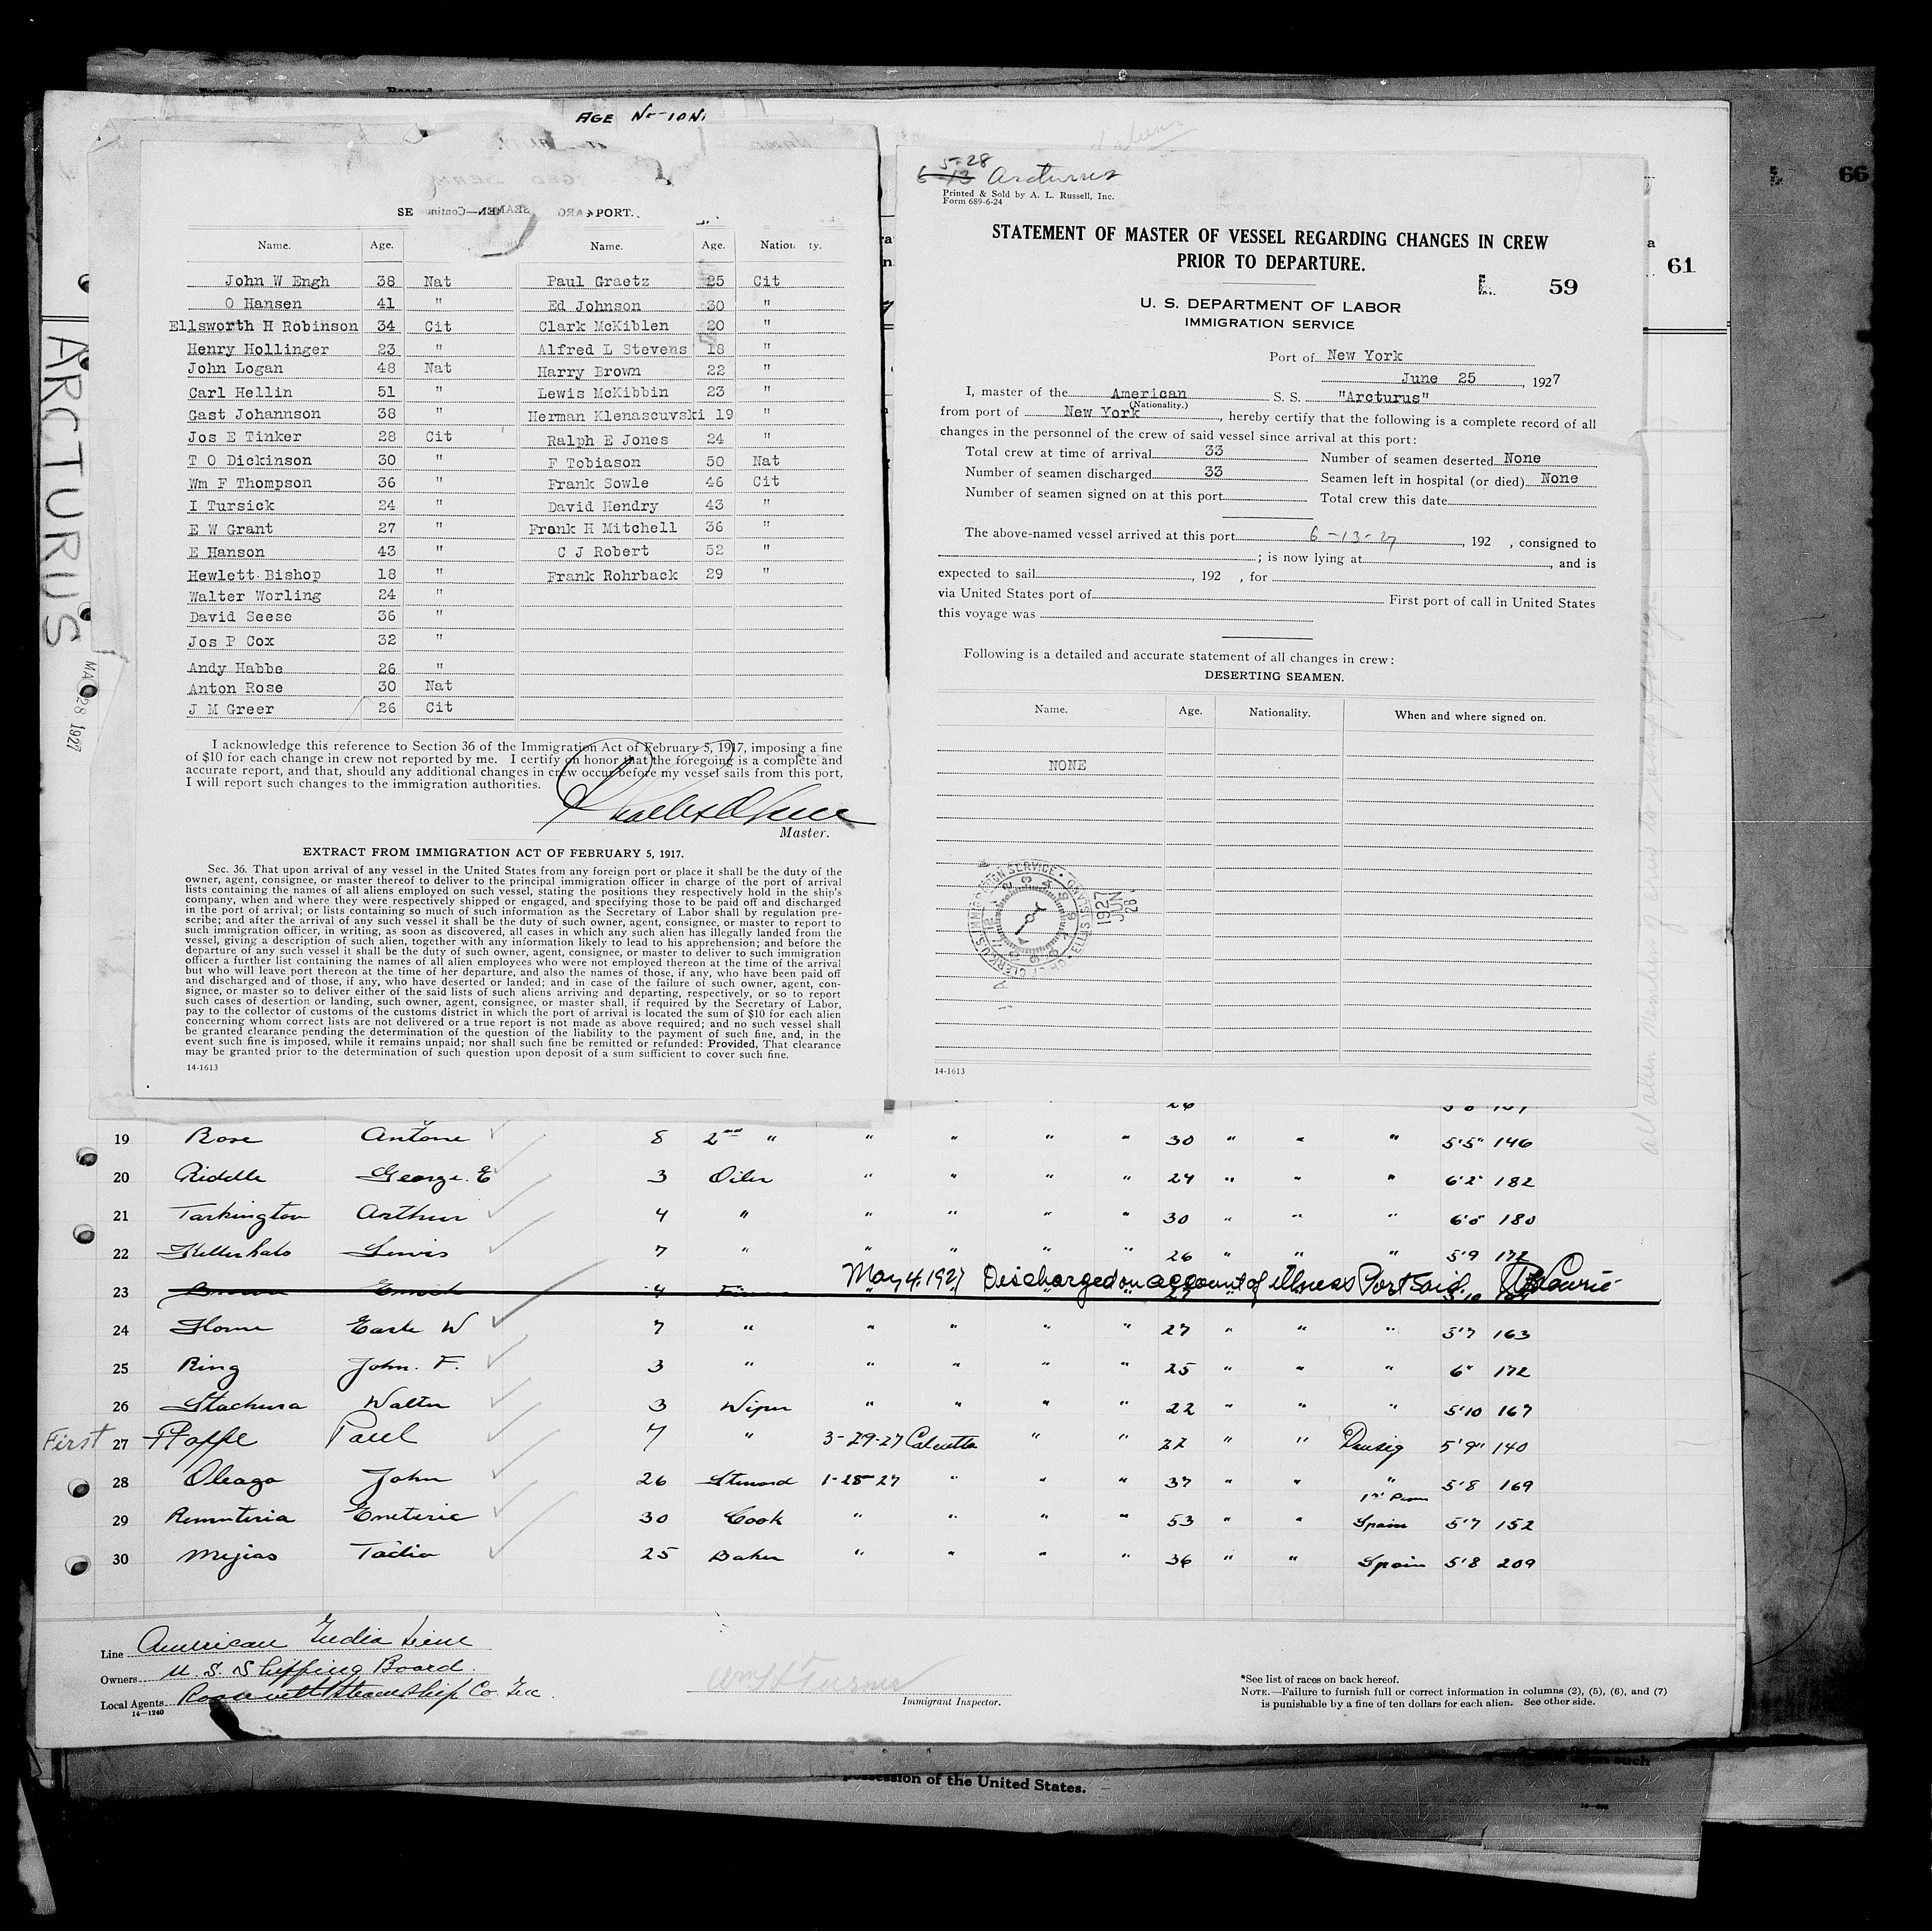 AGE
66
61
ARCTURUS
28 1927
PORT.
Name. Age. Name. Age.
John W Engh 38 Nat Paul Graetz 25 Cit
O Hansen 41 " Ed Johnson 30 "
Ellsworth H Robinson 34 Cit Clark McKiblen 20 "
Henry Hollinger 23 " Alfred L Stevens 18 "
John Logan 48 Nat Harry Brown 22 "
Carl Hellin 51 " Lewis McKibbin 23 "
Gast Johannson 38 " Herman Klenascuvski 19 "
Jos E Tinker 28 Cit Ralph E Jones 24 "
T O Dickinson 30 " F Tobiason 50 Nat
Wm F Thompson 36 " Frank Sowle 46 Cit
I Tursick 24 " David Hendry 43 "
E W Grant 27 " Frank H Mitchell 36 "
E Hanson 43 " C J Robert 52 "
Hewlett Bishop 18 " Frank Rohrback 29 "
Walter Worling 24 "
David Seese 36 "
Jos P Cox 32 "
Andy Habbe 26 "
Anton Rose 30 Nat
J M Greer 26 Cit
I acknowledge this reference to Section 36 of the Immigration Act of February 5, 1917, imposing a fine
of $10 for each change in crew not reported by me. I certify on honor that the foregoing is a complete and
accurate report, and that, should any additional changes in crew occur before my vessel sails from this port,
I will report such changes to the immigration authorities.
Master.
EXTRACT FROM IMMIGRATION ACT OF FEBRUARY 5, 1917.
Sec. 36. That upon arrival of any vessel in the United States from any foreign port or place it shall be the duty of the
owner, agent, consignee, or master thereof to deliver to the principal immigration officer in charge of the port of arrival
lists containing the names of all aliens employed on such vessel, stating the positions they respectively hold in the ship's
company, when and where they were respectively shipped or engaged, and specifying those to be paid off and discharged
in the port of arrival; or lists containing so much of such information as the Secretary of Labor shall by regulation pre-
scribe; and after the arrival of any such vessel it shall be the duty of such owner, agent, consignee, or master to report to
such immigration officer, in writing, as soon as discovered, all cases in which any such alien has illegally landed from the
vessel, giving a description of such alien, together with any information likely to lead to his apprehension; and before the
departure of any such vessel it shall be the duty of such owner, agent, consignee, or master to deliver to such immigration
officer a further list containing the names of all alien employees who were not employed thereon at the time of the arrival
but who will leave port thereon at the time of her departure, and also the names of those, if any, who have been paid off
and discharged and of those, if any, who have deserted or landed; and in case of the failure of such owner, agent, con-
signee, or master so to deliver either of the said lists of such aliens arriving and departing, respectively, or so to report
such cases of desertion or landing, such owner, agent, consignee, or master shall, if required by the Secretary of Labor,
pay to the collector of customs of the customs district in which the port of arrival is located the sum of $10 for each alien
concerning whom correct lists are not delivered or a true report is not made as above required; and no such vessel shall
be granted clearance pending the determination of the question of the liability to the payment of such fine, and, in the
event such fine is imposed, while it remains unpaid; nor shall such fine be remitted or refunded: Provided, That clearance
may be granted prior to the determination of such question upon deposit of a sum sufficient to cover such fine.
14-1613
5-28
6-13 Arcturus
Printed & Sold by A. L. Russell, Inc.
Form 689-6-24
STATEMENT OF MASTER OF VESSEL REGARDING CHANGES IN CREW
PRIOR TO DEPARTURE.
59
U. S. DEPARTMENT OF LABOR
IMMIGRATION SERVICE
Port of New York
June 25, 1927
I, master of the American S. S. "Arcturus"
(Nationality.)
from port of New York, hereby certify that the following is a complete record of all
changes in the personnel of the crew of said vessel since arrival at this port:
Total crew at time of arrival 33 Number of seamen deserted None
Number of seamen discharged 33 Seamen left in hospital (or died) None
Number of seamen signed on at this port Total crew this date
The above-named vessel arrived at this port 6-13-27, 192 , consigned to
; is now lying at , and is
expected to sail , 192 , for
via United States port of First port of call in United States
this voyage was
Following is a detailed and accurate statement of all changes in crew:
DESERTING SEAMEN.
Name. Age. Nationality. When and where signed on.
NONE
1927 JUN 28
14-1613
19 Rose Antone 8 2nd " " " " " 30 " " " 5'5" 146
20 Riddle George. E 3 Oiler " " " " 24 " " " 6'2" 182
21 Tarkington Arthur 4 " " " " " 30 " " " 6'0" 180
22 Lewis 7 " " " " " 26 " " " 5'9 172
May 4, 1927 Discharged on account of illness Port Said.
23 Brown 4
24 Earle W 7 " " " " " 27 " " " 5'7 163
25 Ring John. F. 3 " " " " " 25 " " " 6" 172
26 Stachura Walter 3 Wiper " " " " 22 " " " 5'10 167
First 27 Paul 7 " 3-29-27 Calcutta " " 22 " " Danzig 5'9" 140
28 Oleaga John 26 Steward 1-28-27 " " " 37 " " " 5'8 169
29 30 Cook " " " " 53 " " Spain 5'7 152
30 Mejias 25 Baker " " " " 36 " " Spain 5'8 209
Line American India Line
Owners U. S. Shipping Board.
Local Agents Roosevelt Steamship Co. Inc.
14-1240
Wm H Turner
Immigrant Inspector.
*See list of races on back hereof.
NOTE.—Failure to furnish full or correct information in columns (2), (5), (6), and (7)
is punishable by a fine of ten dollars for each alien. See other side.
such
possession of the United States.